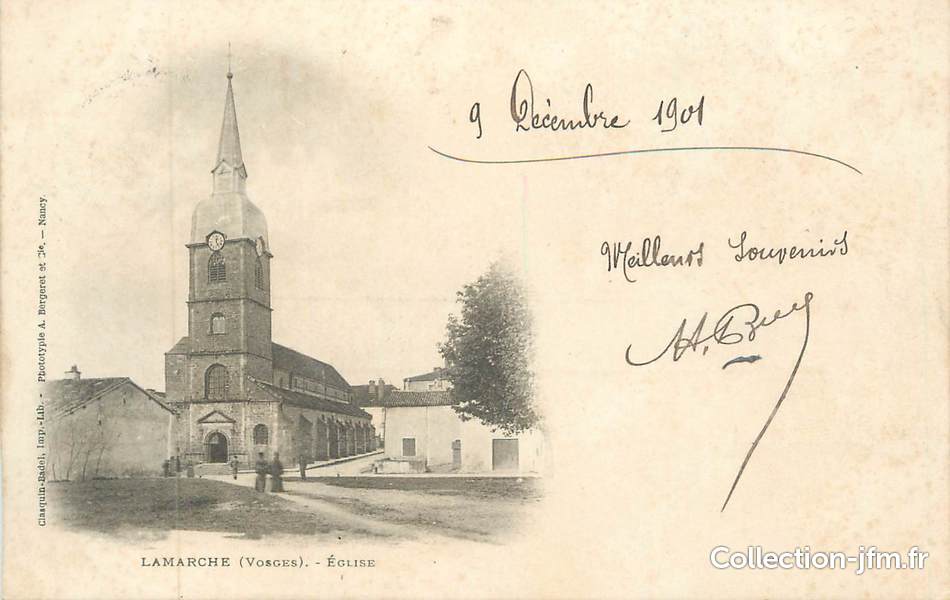 9 Décembre 1901
Meilleurs Souvenirs
Clasquin-Badel, Imp.-Lib. - Phototypie A. Bergeret et Cie. — Nancy.
LAMARCHE (VOSGES). - ÉGLISE
Collection-jfm.fr